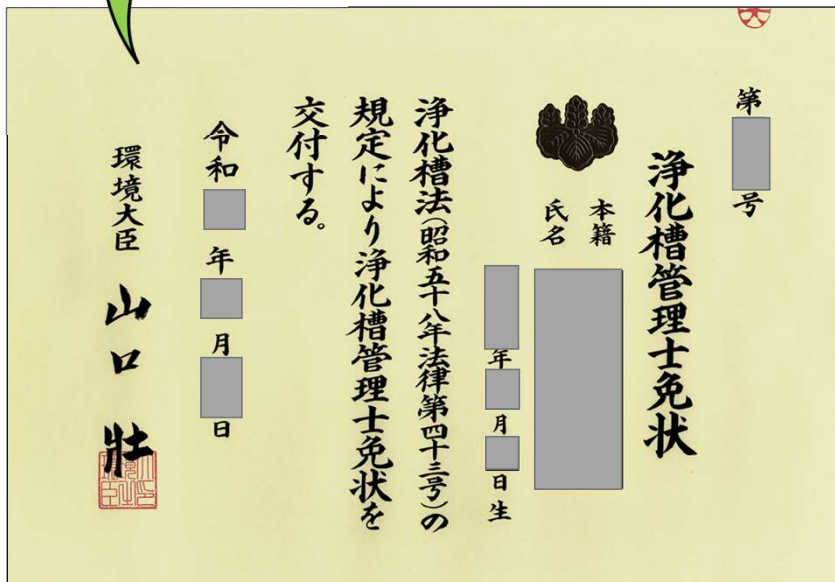 第 号
浄化槽管理士免状
本籍
氏名
年 月 日生
浄化槽法(昭和五十八年法律第四十三号)の
規定により浄化槽管理士免状を
交付する。
令和 年 月 日
環境大臣 山口 壯